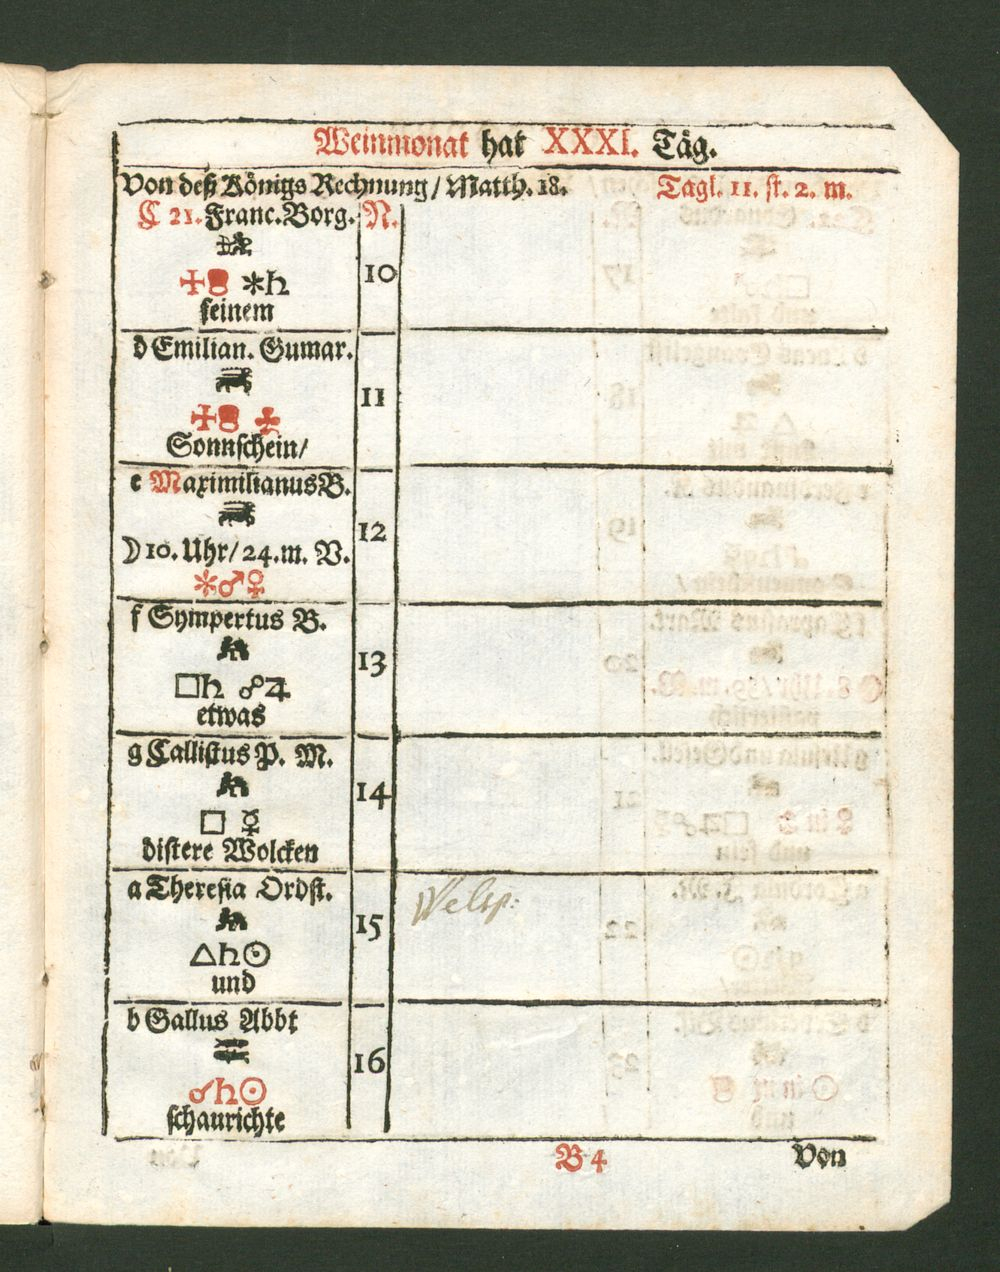 Weinmonat hat XXXI. Täg.
Von deß Königs Rechnung / Matth. 18. Tagl. 11. st. 2. m.
C 21. Franc. Borg. N.
10
✱♄
seinem
d Emilian. Gumar.
11
Sonnschein /
e Maximilianus B.
12
☽ 10. Uhr / 24. m. V.
✱♂♀
f Sympertus B.
13
□♄ ☍♃
etwas
g Callistus P. M.
14
□ ☿
distere Wolcken
a Theresia Ordst.
15
Welsp:
△♄☉
und
b Gallus Abbt
16
☌♄☉
schaurichte
B 4 Von